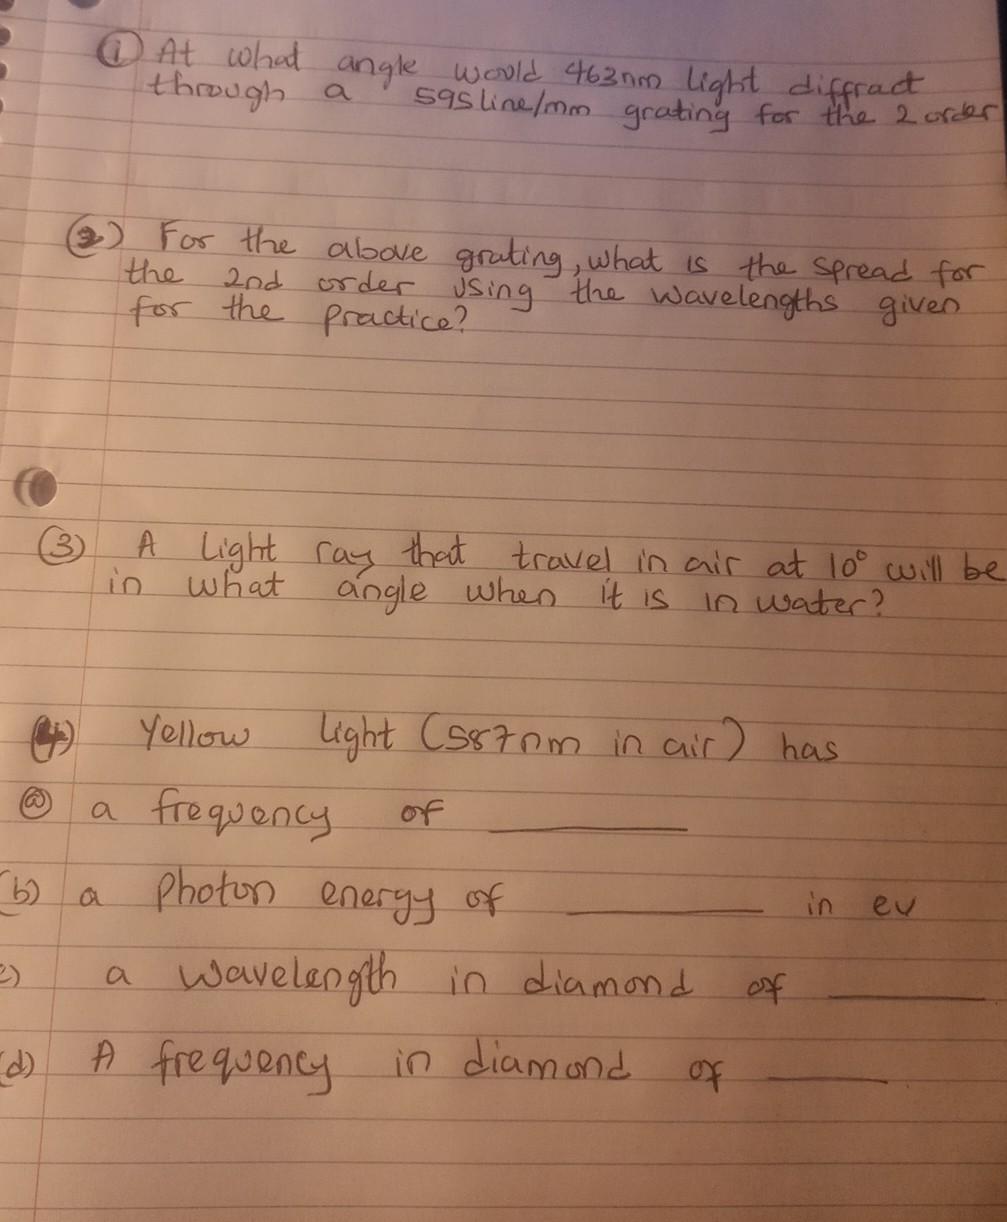 ① At what angle would 463nm light diffract
through a 595line/mm grating for the 2 order
(2) For the above grating, what is the spread for
the 2nd order using the wavelengths given
for the practice?
③ A light ray that travel in air at 10° will be
in what angle when it is in water?
(4) Yellow light (587nm in air) has
ⓐ a frequency of ________
(b) a photon energy of ________ in ev
c) a wavelength in diamond of ________
(d) A frequency in diamond of ________